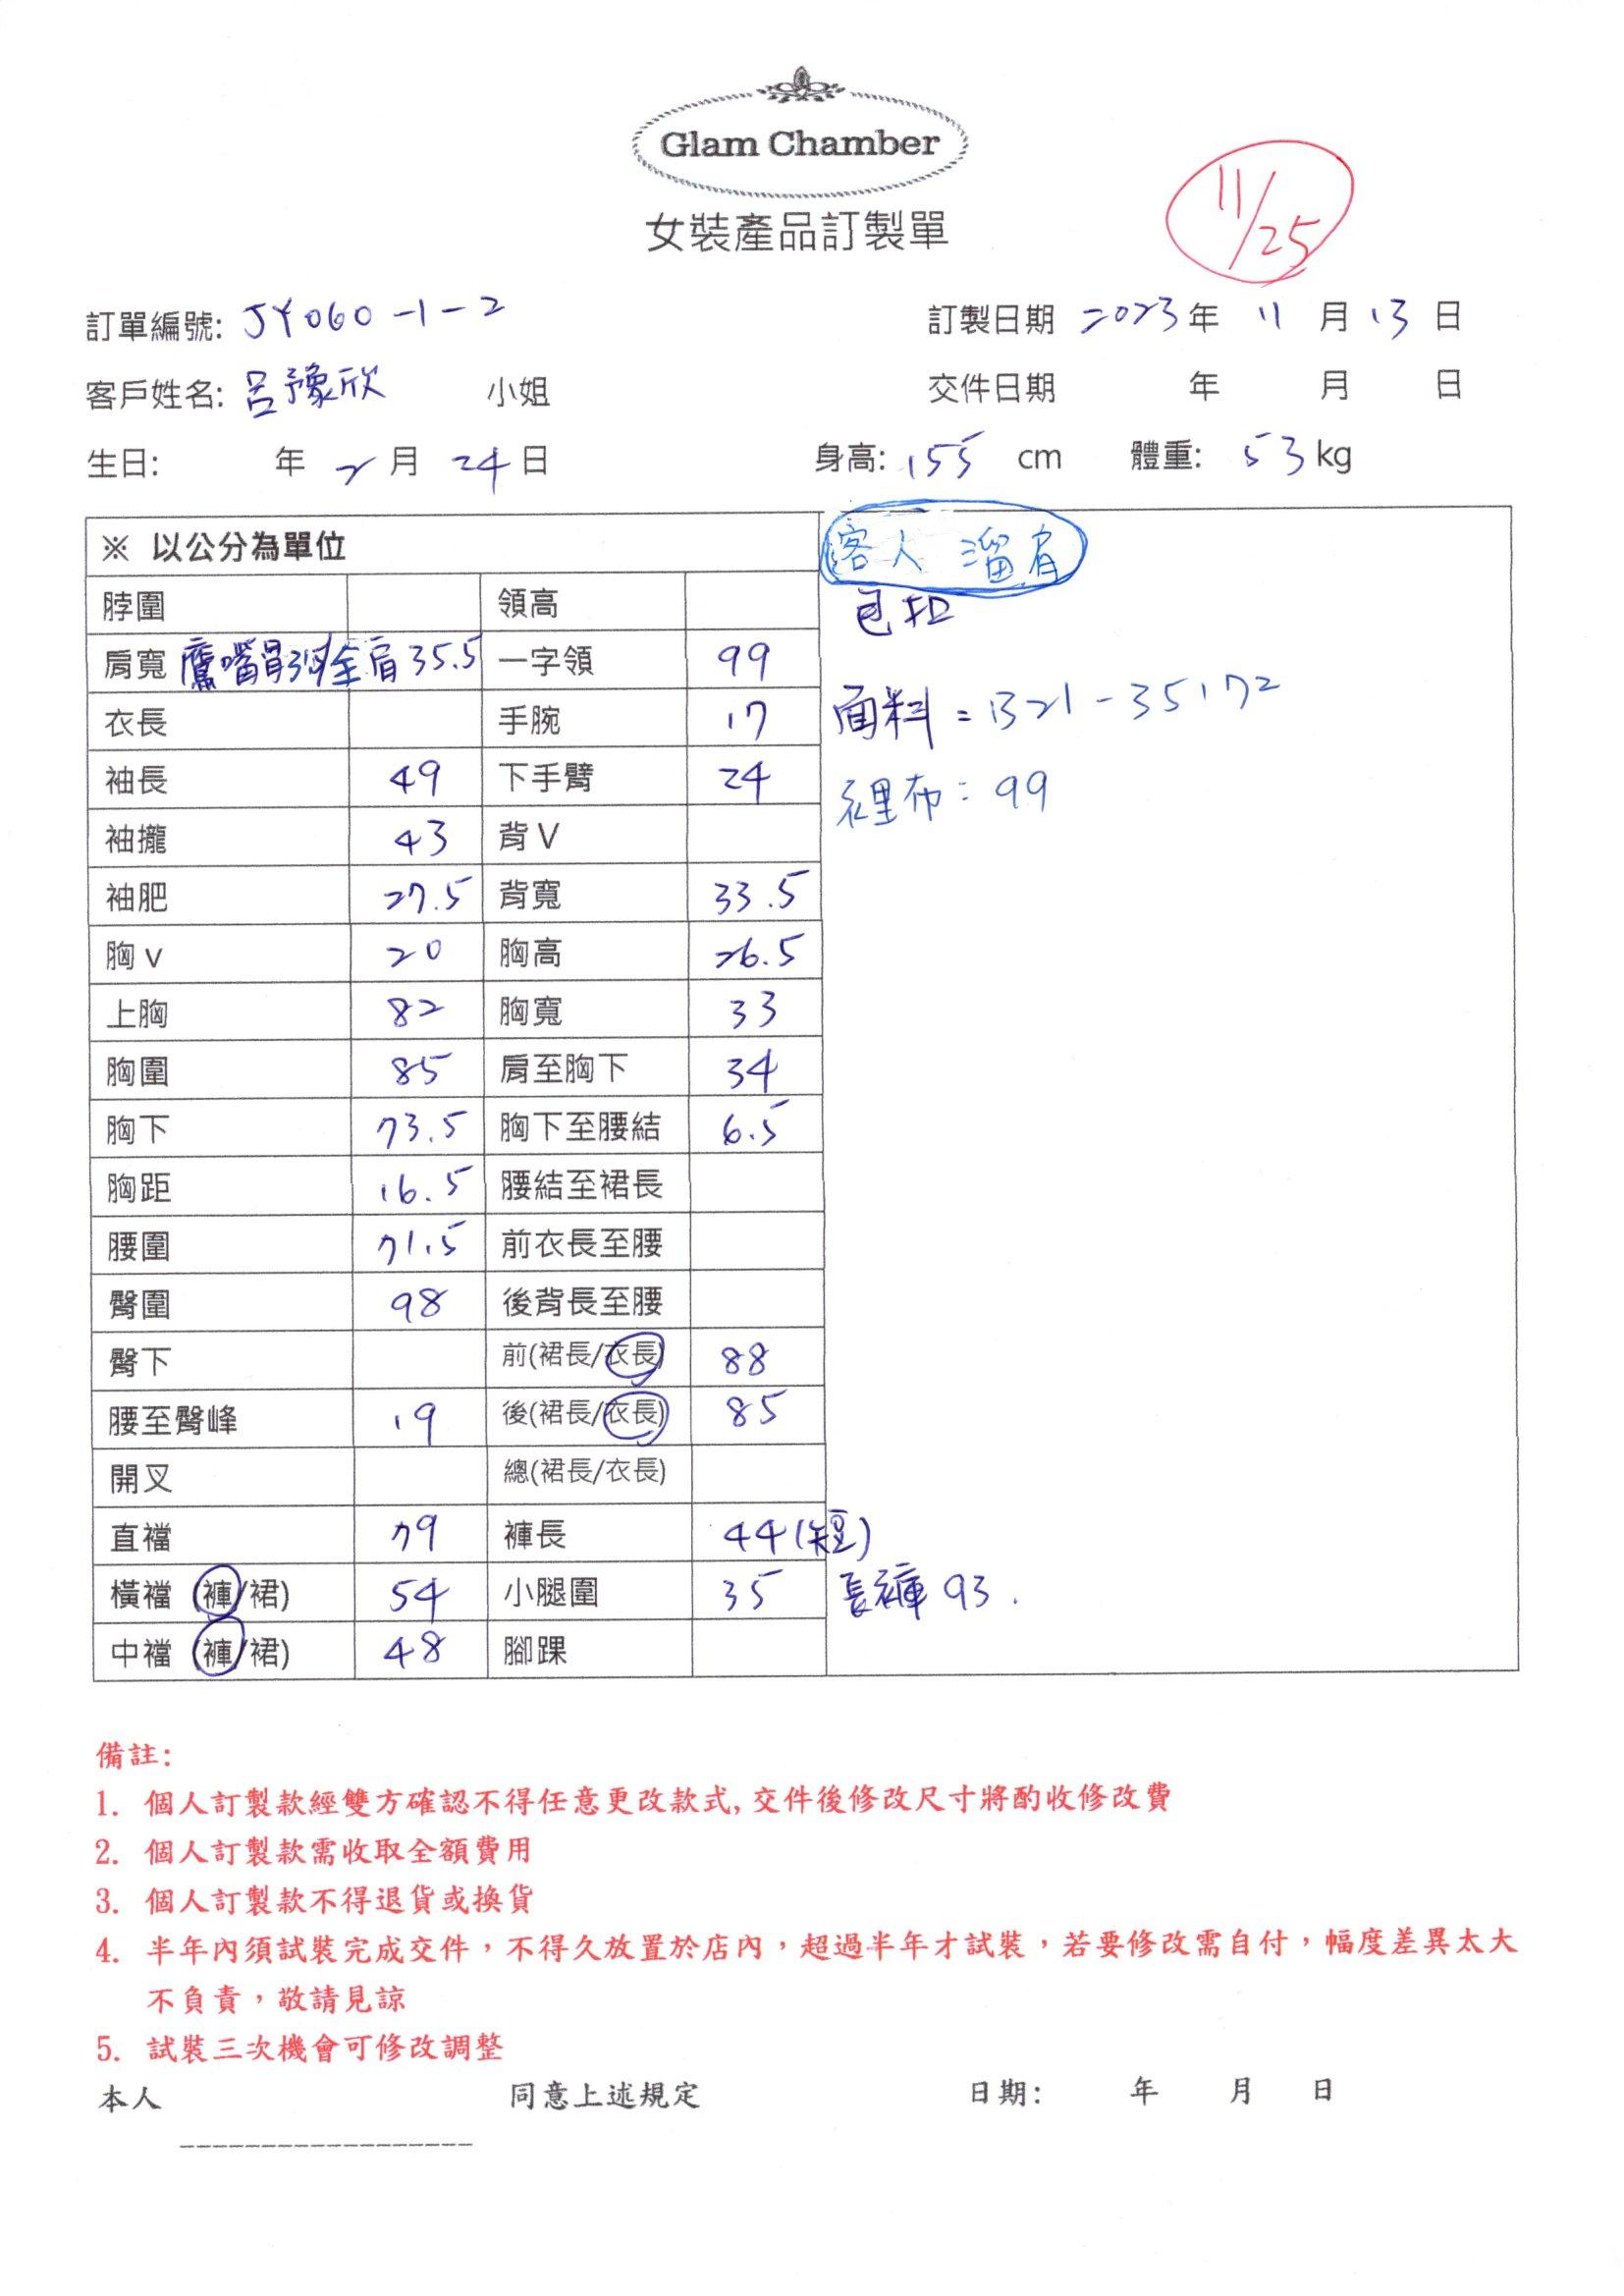 Glam Chamber
女裝產品訂製單
11/25
訂單編號: JY060-1-2 訂製日期 2023年 11月 13日
客戶姓名: 呂豫欣 小姐 交件日期 年 月 日
生日: 年 2月 24日 身高: 155 cm 體重: 53 kg
※ 以公分為單位 客人 溜肩
脖圍 領高 包扣
肩寬 鷹嘴肩 全肩 35.5 一字領 99
衣長 手腕 17 面料 = B21-35172
袖長 49 下手臂 24 裡布: 99
袖攏 43 背V
袖肥 27.5 背寬 33.5
胸v 20 胸高 26.5
上胸 82 胸寬 33
胸圍 85 肩至胸下 34
胸下 73.5 胸下至腰結 6.5
胸距 16.5 腰結至裙長
腰圍 71.5 前衣長至腰
臀圍 98 後背長至腰
臀下 前(裙長/衣長) 88
腰至臀峰 19 後(裙長/衣長) 85
開叉 總(裙長/衣長)
直襠 79 褲長 44(短)
橫襠 (褲/裙) 54 小腿圍 35 長褲 93.
中襠 (褲/裙) 48 腳踝
備註:
1. 個人訂製款經雙方確認不得任意更改款式, 交件後修改尺寸將酌收修改費
2. 個人訂製款需收取全額費用
3. 個人訂製款不得退貨或換貨
4. 半年內須試裝完成交件，不得久放置於店內，超過半年才試裝，若要修改需自付，幅度差異太大
不負責，敬請見諒
5. 試裝三次機會可修改調整
本人 同意上述規定 日期: 年 月 日